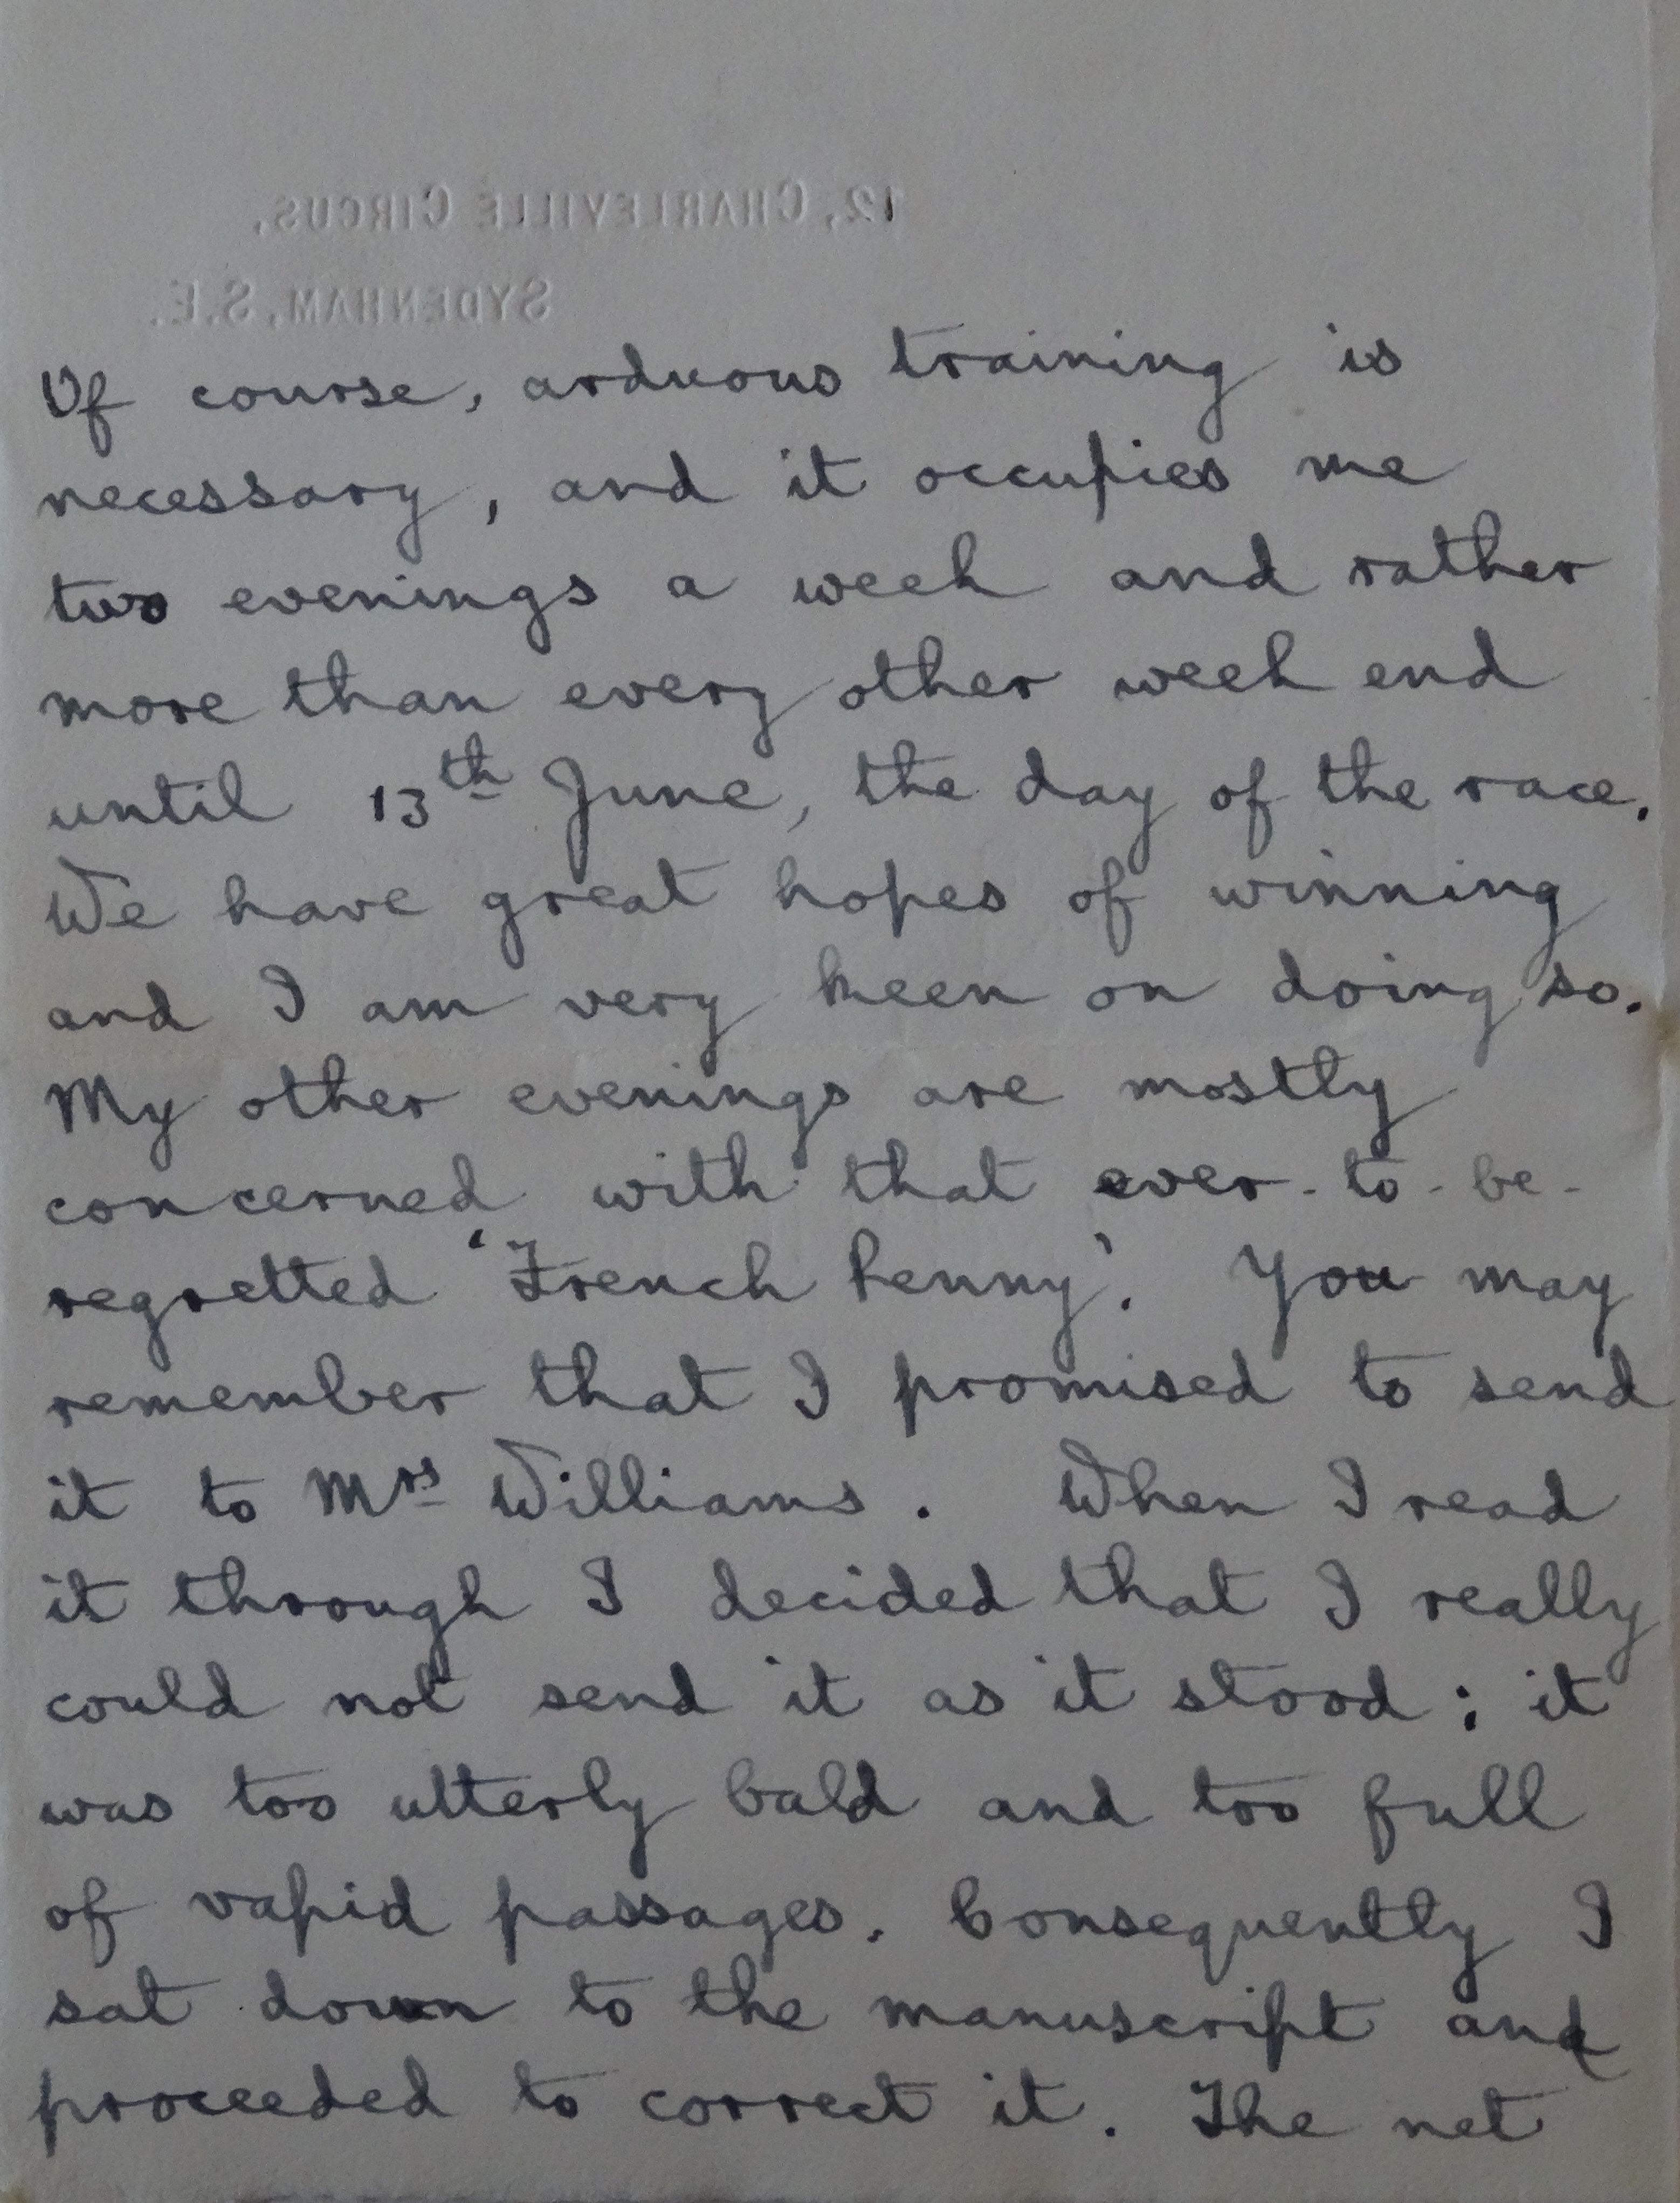 12, CHARLEVILLE CIRCUS,
SYDENHAM, S.E.
Of course, arduous training is
necessary, and it occupies me
two evenings a week and rather
more than every other week end
until 13th June, the day of the race.
We have great hopes of winning
and I am very keen on doing so.
My other evenings are mostly
concerned with that ever-to-be-
regretted 'French Penny'. You may
remember that I promised to send
it to Mrs Williams. When I read
it through I decided that I really
could not send it as it stood; it
was too utterly bald and too full
of vapid passages. Consequently I
sat down to the manuscript and
proceeded to correct it. The net